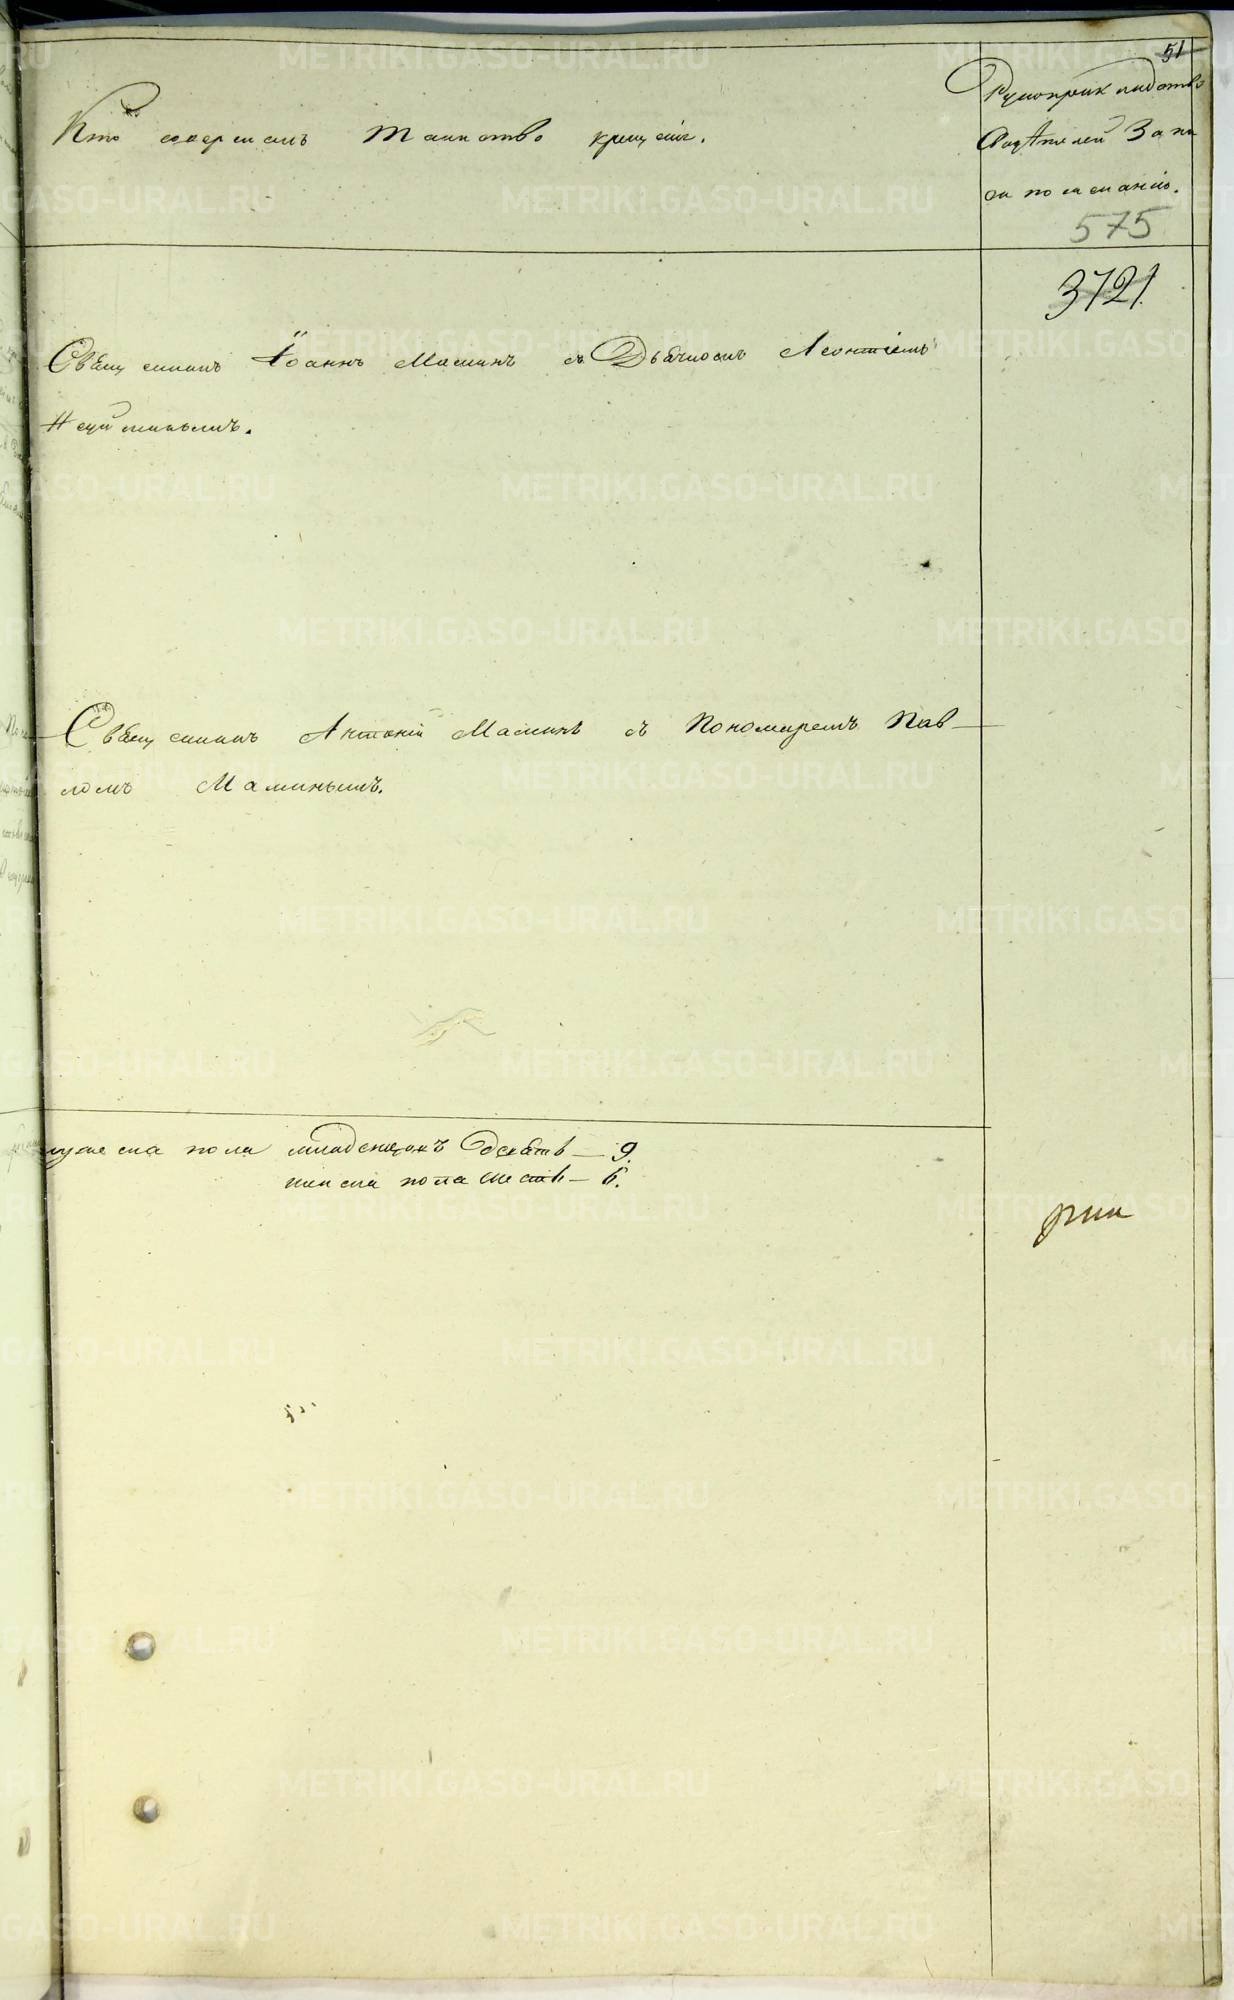 51
Кто совершалъ таинство крещенія.
Рукоприкладство
свидѣтелей запи
си по желанію.
575
3721.
Священникъ Іоаннъ Маминъ съ Дьячкомъ Леонтіемъ
Священникъ Антоній Маминъ съ Пономаремъ Пав-
ломъ Маминымъ.
мужеска пола младенцовъ девять — 9.
женска пола шесть — 6.
METRIKI.GASO-URAL.RU